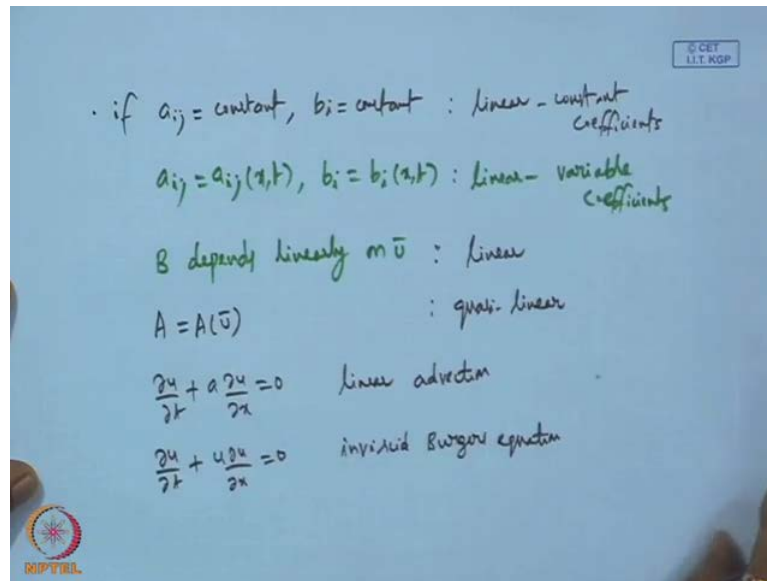 © CET
I.I.T. KGP
· if aij = constant, bi = constant : linear - constant
coefficients
aij = aij(x,t), bi = bi(x,t) : linear - variable
coefficients
B depends linearly on ū : linear
A = A(ū) : quasi-linear
∂u/∂t + a ∂u/∂x = 0 linear advection
∂u/∂t + u ∂u/∂x = 0 inviscid Burger equation
NPTEL